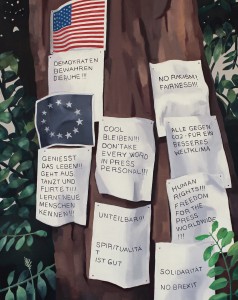 DEMOKRATEN
BEWAHREN
DIERUHE!!!
NO RACISM!
FAIRNESS!!!
COOL
BLEIBEN!!!
DON'T TAKE
EVERY WORD
IN PRESS
PERSONAL!!!
ALLE GEGEN
CO2-FÜR EIN
BESSERES
WELTKLIMA
GENIESST
DAS LEBEN!!!
GEHT AUS,
TANZT UND
FLIRTET!!!
LERNT NEUE
MENSCHEN
KENNEN!!!
HUMAN
RIGHTS!!!
FREEDOM
FOR THE
PRESS
WORLDWIDE
!!!
UNTEILBAR!!!
SPIRITUALITÄT
IST GUT?
SOLIDARITÄT
NO BREXIT